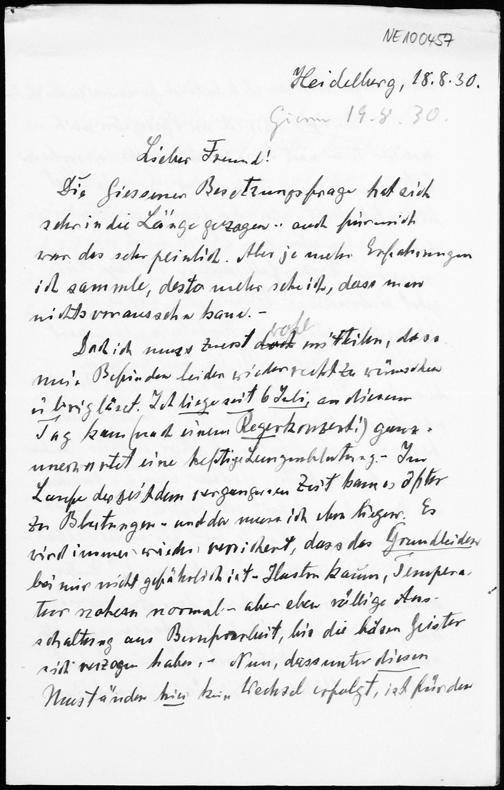 NE100457
Heidelberg, 18.8.30.
19.8.30.
Lieber Freund!
Die Giessener Besetzungsfrage hat sich
sehr in die Länge gezogen – auch für mich
war das sehr peinlich. Aber je mehr Erfahrungen
ich sammle, desto mehr sehe ich, dass man
nichts voraussehn kann. –
Doch ich muss zuerst wohl mitteilen, dass
mein Befinden leider wieder recht zu wünschen
übrig lässt. Ich liege seit 6 Juli, an diesem
Tag kam (nach einem Regerkonzert!) ganz
unerwartet eine heftige Lungenblutung. – Im
Laufe der seitdem vergangenen Zeit kam es öfter
zu Blutungen – und da muss ich eben liegen. Es
wird immer wieder versichert, dass das Grundleiden
bei mir nicht gefährlich ist – Husten kaum, Tempera-
tur nahezu normal – aber eben völlige Aus-
schaltung aus Berufsarbeit, bis die bösen Geister
sich verzogen haben. – Nun, dass unter diesen
Umständen hier kein Wechsel erfolgt, ist für den